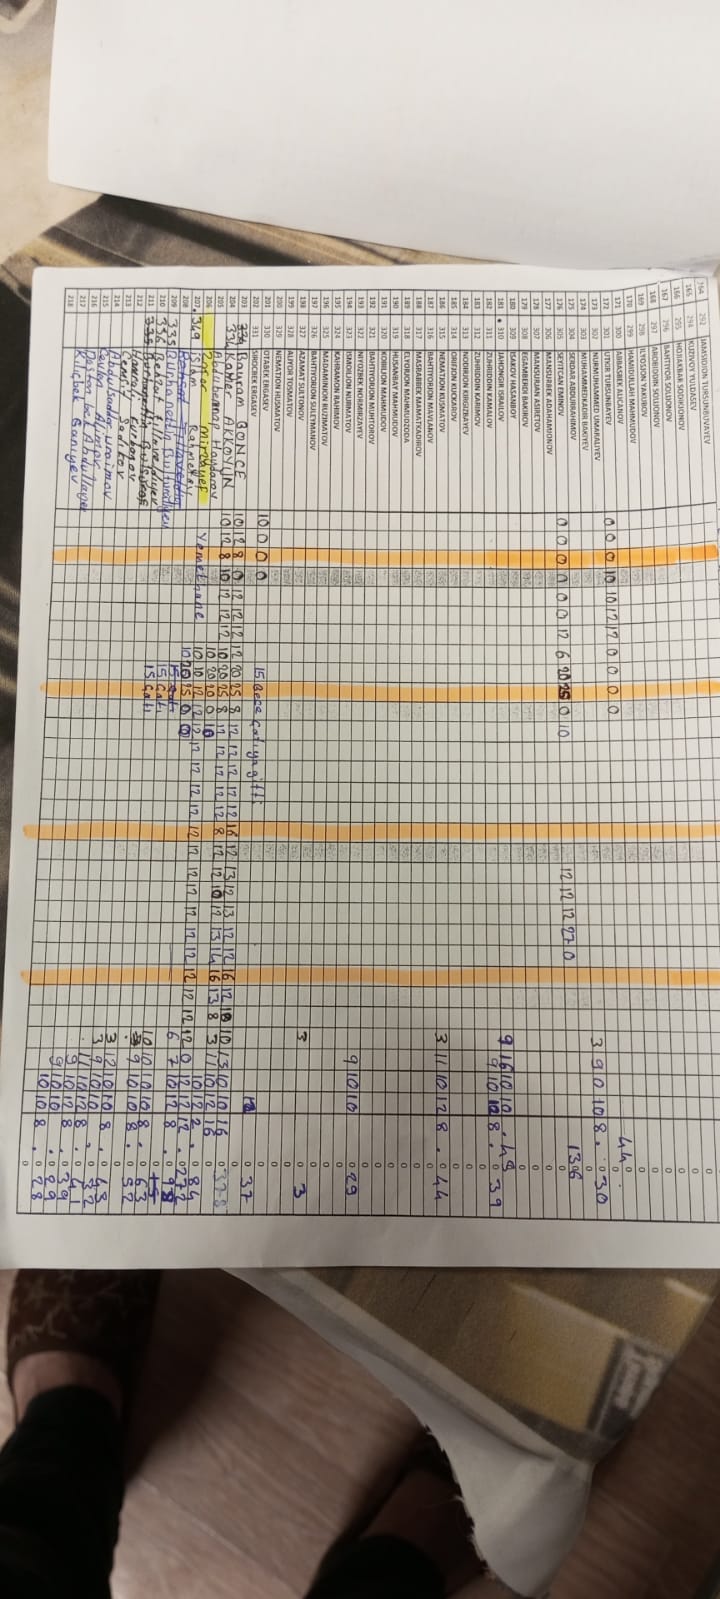 164 292 JAMSIDJON TURSUNBUVAYEV 0
165 294 KUZIVOY YULDASEV 0
166 295 HOJIAKBAR SODIKJONOV 0
167 296 BAHTIYOR SOLIJONOV 0
168 297 AROBIDDIN SOLIJONOV 0
169 298 ILYOSJON YAKUBOV 0
170 299 HAMIDULLAH MAHMUDOV 0
171 300 ABBASBEK ALICANOV 0
172 301 UTKIR TURSUNBAYEV 0 0 0 10 10 12 12 0 0 0 0 44 0
173 302 NURMUHAMMED UMARALIYEV 0
174 303 MUHAMMEDKADIR BAKIYEV 3 9 0 10 8 . 0 30
175 304 SERDAR ABDURRAHIMOV 0
176 305 SEYITCAN EMINOV 0 0 0 0 0 0 12 6 20 25 0 10 12 12 12 27 0 136
177 306 MANSURBEK ADAHAMJONOV 0
178 307 MANSURJAN ASIRETOV 0
179 308 EGAMBERDI BAKIROV 0
180 309 ISAKOV HASANBOY 0
181 310 JAHONGIR ISRAILOV 9 16 10 10 . 45
182 311 ZUHRIDDIN KAMALOV 9 10 12 8 . 0 39
183 312 ZUHRIDDIN KARIMOV 0
184 313 NODIRJON KIRGIZBAYEV 0
185 314 ORIFJON KUCKAROV 0
186 315 NEMATJON KUSMATOV 3 11 10 12 8 . 0 44
187 316 BAHTIYORJON MAVLANOV 0
188 317 MASRABBEK MAMATKADIROV 0
189 318 ELYORJON MAHMUDZODA 0
190 319 HUSANBAY MAHMUDOV 0
191 320 KOBILJON MAHMUDOV 0
192 321 BAHTIYORJON MUHTOROV 0
193 322 NIYOZBEK NORMIRZAYEV 0
194 323 ISMOILJON NURMATOV 9 10 10 0 29
195 324 KAHRAMON RAHIMOV 0
196 325 MADAMINJON RUZIMATOV 0
197 326 BAHTIYORJON SULEYMANOV 0
198 327 AZAMAT SULTONOV 3 0 3
199 328 ALIYOR TOSMATOV 0
200 329 NEMATJON HUSMATOV 0
201 330 OTABEK ERGASEV 10 0 0 0 0
202 331 SIROCBEK ERGASEV 15 Gece Çatıya gitti 0 37
203 334 Bayram GONCE 10 12 8 0 12 12 12 12 20 25 8 12 12 12 12 12 16 12 13 12 13 12 12 16 12 18 10 13 10 10 16
204 334 Kamer AKKOYUN 10 12 8 10 12 12 12 10 20 25 8 12 12 12 12 12 8 12 12 10 12 13 14 16 13 8 3 11 10 12 16
205 Abdubennap Haydarov 10 20 20 0 10
206 Mirzayef Yemekhane 10 10 12 12 12 12 12 12 12 12 12 12 12 12 12 12 12 12 12 12 12 0 12 12 12 . 0272
207 349 islam Rahmetov 10 20 25 0 0
208 15 Çatı
209 335 Burhanettin 15 Çatı
210 336 Behzat tillaveldiyev 15 Çatı 10 10 10 10 8 . 63
211 335 Burhanettin 9 10 10 8 . 0 52
212 Hamrali Kurbanov
213 Cemsit Sadikov 3 12 10 10 8 . 43
214 Abdulsaddor uraimov 3 9 10 10 . 32
215 Cevlan Alimov 11 10 12 8 . 41
216 Dostan bek Abdullayev 9 10 12 8 . 0 39
217 Kılıçbek Ganiyev 9 10 10 . 0 29
218 10 10 8 . 0 28